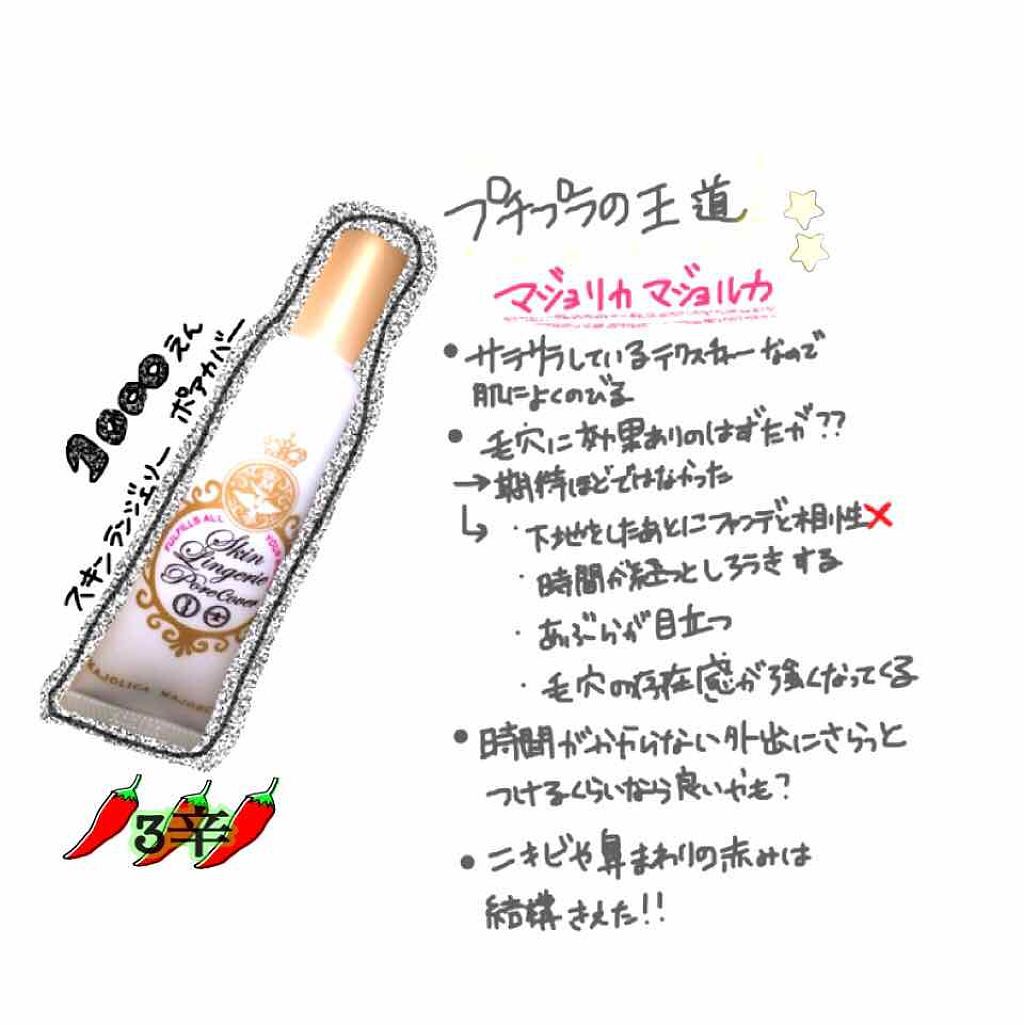 プチプラの王道
マジョリカ マジョルカ
• サラサラしているテクスチャーなので
肌によくのびる
• 毛穴に効果ありのはずだが??
→期待ほどではなかった
↳ ・下地をしたあとにファンデと相性✕
・時間が経っとしろうきする
・あぶらが目立つ
・毛穴の存在感が強くなってくる
• 時間がかからない外出にさらっと
つけるくらいなら良いやも?
• ニキビや鼻まわりの赤みは
結構きえた!!
1000えん
スキンランジェリー ポアカバー
FULFILLS ALL YOUR
Skin
Lingerie
Pore Cover
MAJOLICA MAJORC
3辛